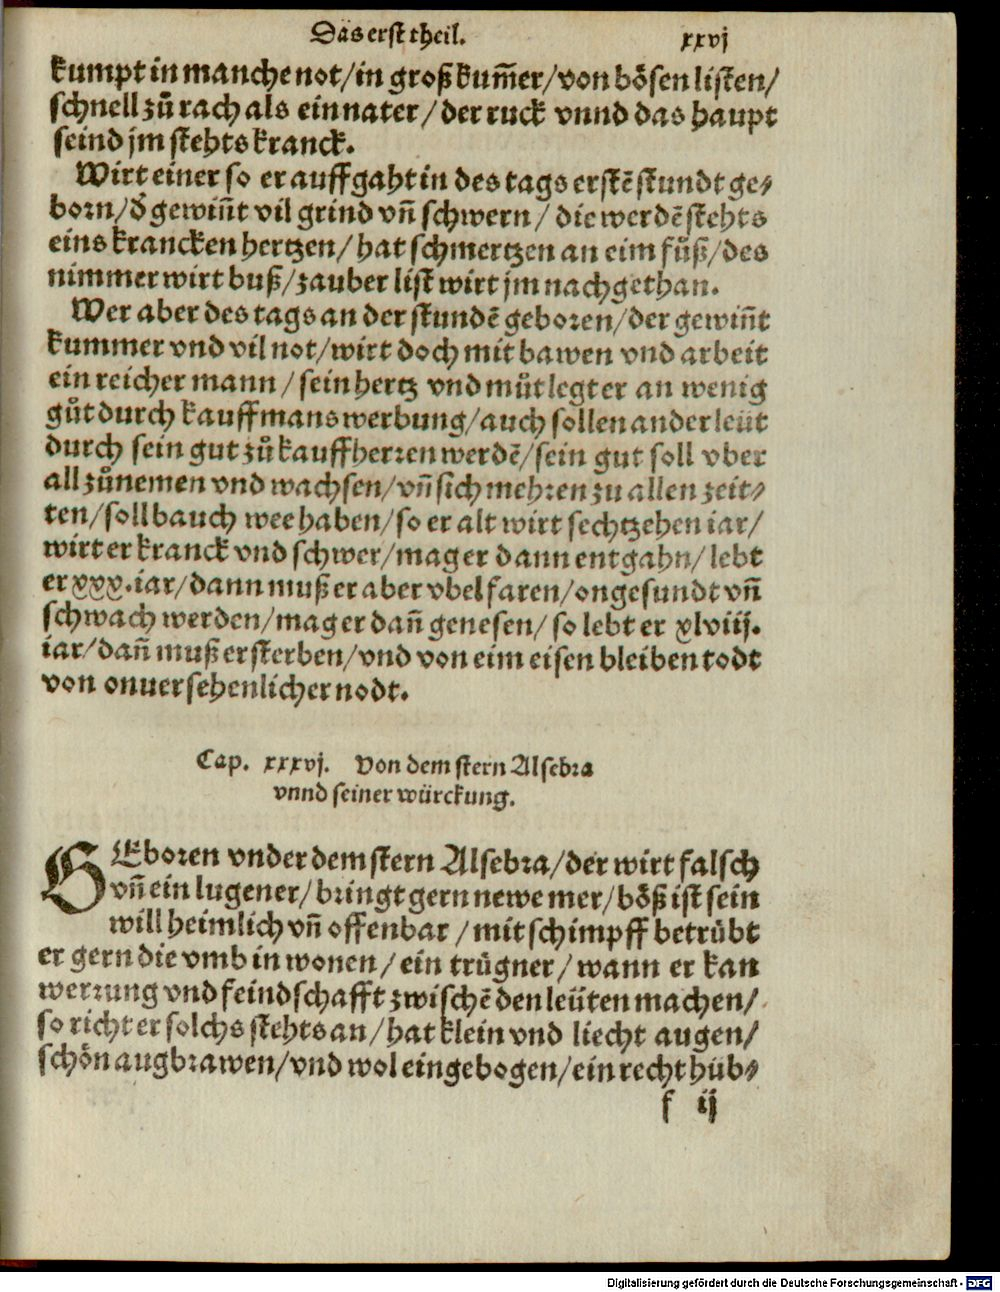 Das erst theil. xxvj
kumpt in manche not/in groß kum̃er/von bösen listen/
schnell zů rach als ein nater/der ruck vnnd das haupt
seind jm stehts kranck.
Wirt einer so er auffgaht in des tags erstẽ stundt ge⸗
born/d̕ gewiñt vil grind vñ schwern/die werdẽ stehts
eins krancken hertzen/hat schmertzen an eim fůß/des
nimmer wirt buß/zauber list wirt jm nachgethan.
Wer aber des tags an der stundẽ geboren/der gewiñt
kummer vnd vil not/wirt doch mit bawen vnd arbeit
ein reicher mann/sein hertz vnd můt legt er an wenig
gůt durch kauffmans werbung/auch sollen ander leüt
durch sein gut zů kauffherren werdẽ/sein gut soll vber
all zůnemen vnd wachsen/vñ sich mehren zu allen zeit⸗
ten/soll bauch wee haben/so er alt wirt sechtzehen iar/
wirt er kranck vnd schwer/mag er dann entgahn/lebt
er xxx.iar/dann muß er aber vbel faren/ongesundt vñ
schwach werden/mag er dañ genesen/so lebt er xlviij.
iar/dañ muß er sterben/vnd von eim eisen bleiben todt
von onuersehenlicher nodt.
Cap. xxxvj. Von dem stern Alsebra
vnnd seiner würckung.
GEboren vnder dem stern Alsebra/der wirt falsch
vñ ein lugener/bringt gern newe mer/böß ist sein
will heimlich vñ offenbar/mit schimpff betrübt
er gern die vmb in wonen/ein trügner/wann er kan
werrung vnd feindschafft zwischẽ den leüten machen/
so richt er solchs stehts an/hat klein vnd liecht augen/
schön augbrawen/vnd wol eingebogen/ein recht hüb⸗
f ij
Digitalisierung gefördert durch die Deutsche Forschungsgemeinschaft - DFG